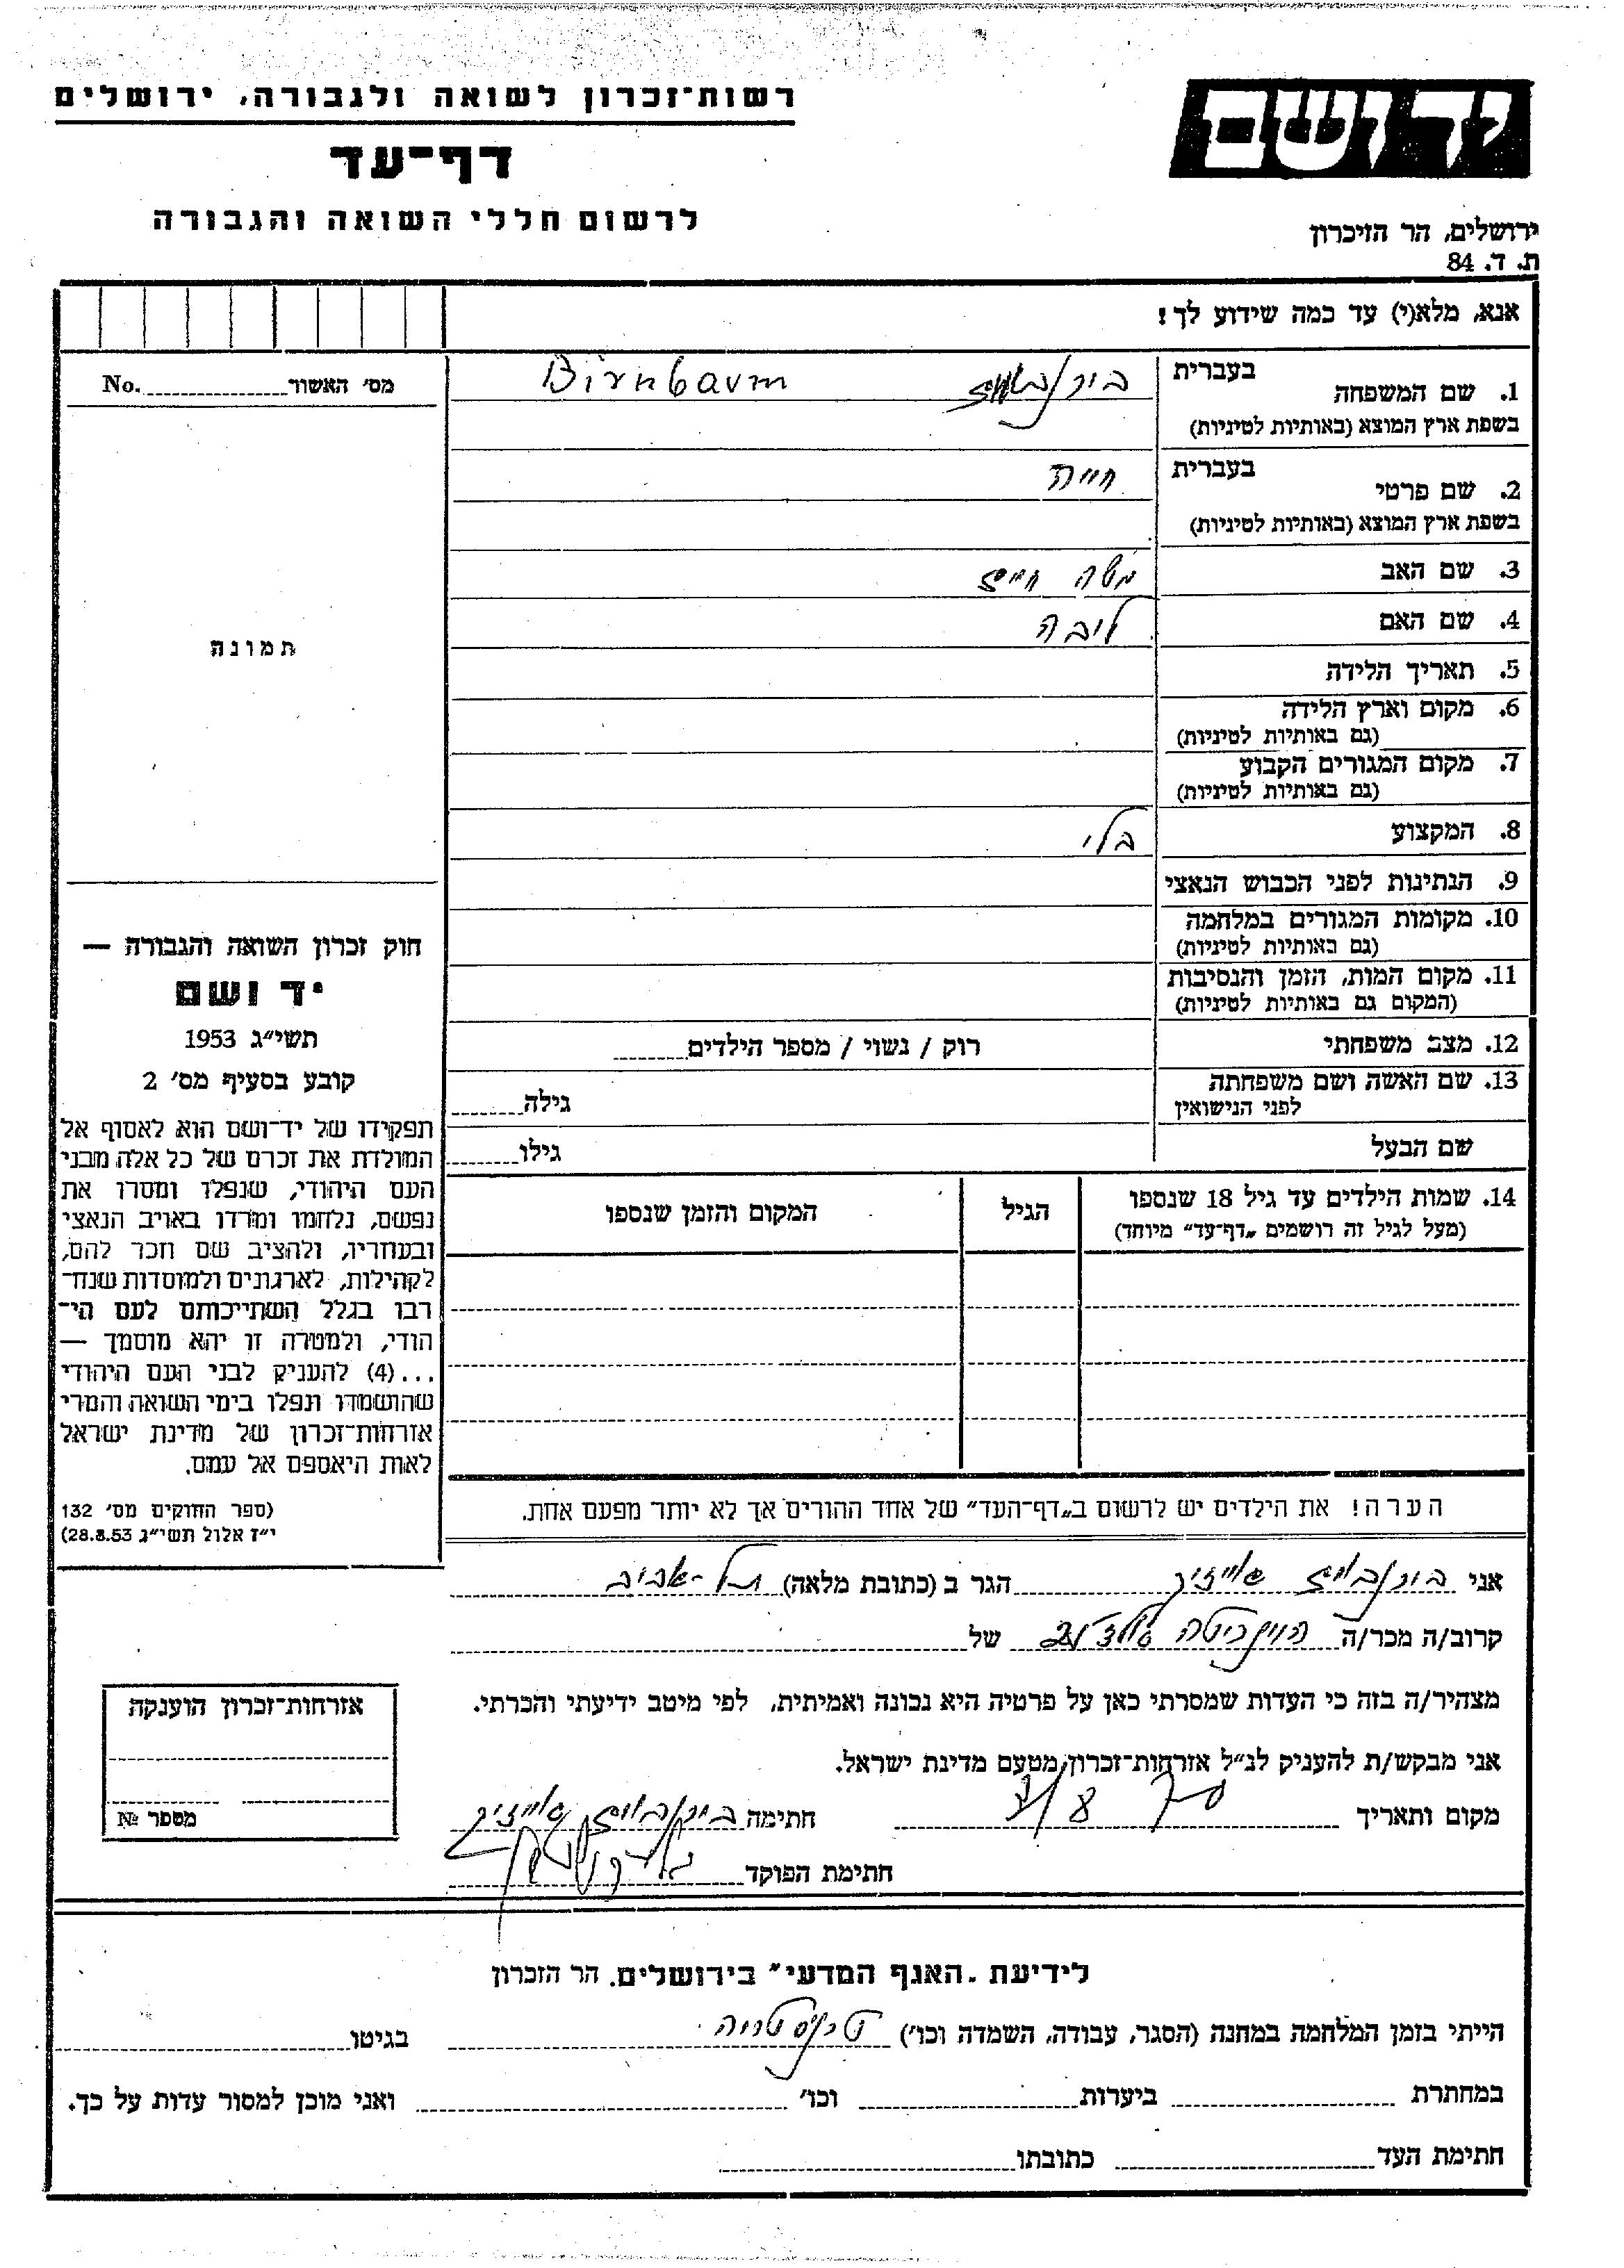 רשות־זכרון לשואה ולגבורה, ירושלים
דף־עד
לרשום חללי השואה והגבורה
ידושם
ירושלים, הר הזיכרון
ת. ד. 84
אנא, מלא(י) עד כמה שידוע לך!
מס׳ האשור No.
1. שם המשפחה בעברית Birnbaum
בשפת ארץ המוצא (באותיות לטיניות)
2. שם פרטי בעברית חייה
בשפת ארץ המוצא (באותיות לטיניות)
3. שם האב משה חיים
4. שם האם ליבה
5. תאריך הלידה
6. מקום וארץ הלידה
(גם באותיות לטיניות)
7. מקום המגורים הקבוע
(גם באותיות לטיניות)
8. המקצוע בלי
9. הנתינות לפני הכבוש הנאצי
10. מקומות המגורים במלחמה
(גם באותיות לטיניות)
11. מקום המות, הזמן והנסיבות
(המקום גם באותיות לטיניות)
12. מצב משפחתי רוק / נשוי / מספר הילדים
13. שם האשה ושם משפחתה
לפני הנישואין גילה
שם הבעל גילו
14. שמות הילדים עד גיל 18 שנספו הגיל המקום והזמן שנספו
(מעל לגיל זה רושמים „דף־עד״ מיוחד)
הערה! את הילדים יש לרשום ב„דף־העד״ של אחד ההורים אך לא יותר מפעם אחת.
תמונה
חוק זכרון השואה והגבורה —
יד ושם
תשי״ג 1953
קובע בסעיף מס׳ 2
תפקידו של יד־ושם הוא לאסוף אל
המולדת את זכרם של כל אלה מבני
העם היהודי, שנפלו ומסרו את
נפשם, נלחמו ומרדו באויב הנאצי
ובעוזריו, ולהציב שם וזכר להם,
לקהילות, לארגונים ולמוסדות שנח־
רבו בגלל השתייכותם לעם הי־
הודי, ולמטרה זו יהא מוסמך —
...(4) להעניק לבני העם היהודי
שהושמדו ונפלו בימי השואה והמרי
אזרחות־זכרון של מדינת ישראל
לאות היאספם אל עמם.
(ספר החוקים מס׳ 132
י״ז אלול תשי״ג 28.8.53)
אני בירנבוים אייזיק הגר ב (כתובת מלאה) תל-אביב
קרוב/ה מכר/ה של
מצהיר/ה בזה כי העדות שמסרתי כאן על פרטיה היא נכונה ואמיתית, לפי מיטב ידיעתי והכרתי.
אני מבקש/ת להעניק לנ״ל אזרחות־זכרון מטעם מדינת ישראל.
מקום ותאריך חתימה בירנבוים אייזיק
חתימת הפוקד
אזרחות־זכרון הוענקה
מספר №
לידיעת „האגף המדעי״ בירושלים, הר הזכרון
הייתי בזמן המלחמה במחנה (הסגר, עבודה, השמדה וכו׳) בגיטו
במחתרת ביערות וכו׳ ואני מוכן למסור עדות על כך.
חתימת העד כתובתו